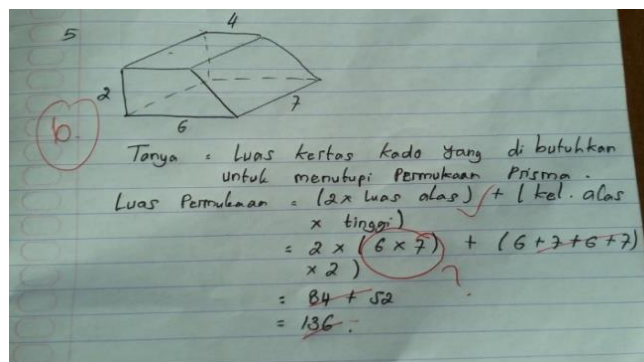 5
4
2
7
6
b.
Tanya = Luas kertas kado yang di butuhkan
untuk menutupi Permukaan Prisma.
Luas Permukaan = (2x luas alas) + (kel. alas
x tinggi)
= 2 x (6 x 7) + (6+7+6+7)
x 2)
?
= 84 + 52
= 136.